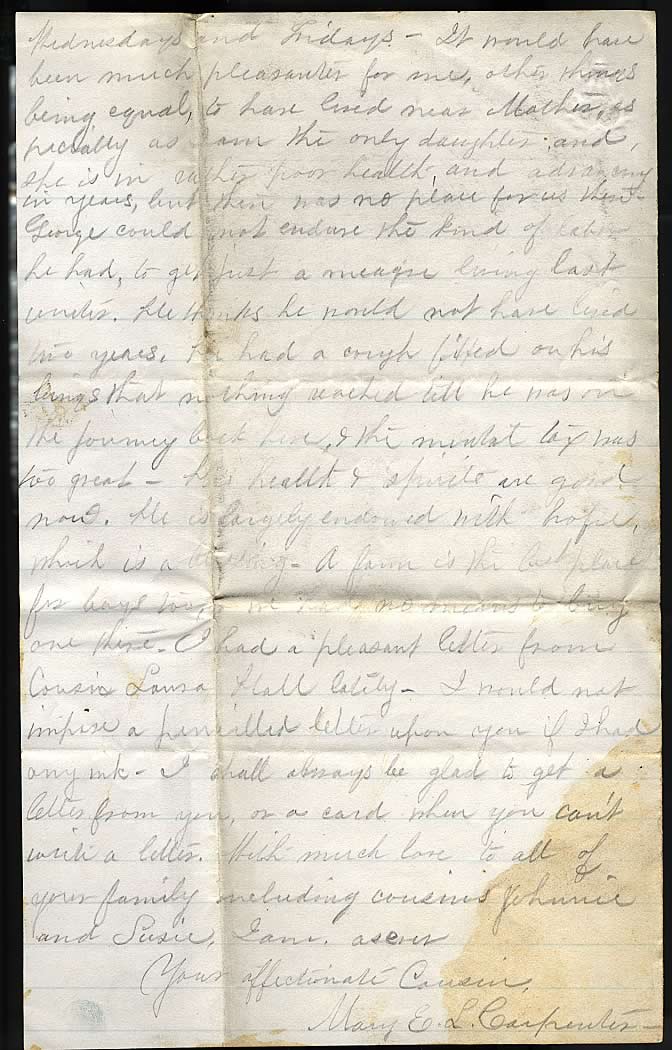 Wednesdays and Fridays - It would have
been much pleasanter for me, other things
being equal, to have lived near Mother, es
pecially as I am the only daughter, and,
she is in rather poor health, and advancing
in years, but there was no place for us there.
George could not endure the kind of labor
he had, to get just a meagre living last
winter. He thinks he would not have lived
two years. He had a cough fixed on his
lungs that nothing reached till he was on
the journey back here, & the mental tax was
too great - His health & spirits are good
now. He is largely endowed with hope,
which is a blessing - A farm is the best place
for boys too, we had no means to buy
one there. I had a pleasant letter from
Cousin Laura Hall lately - I would not
impose a pencilled letter upon you if I had
any ink - I shall always be glad to get a
letter from you, or a card when you can't
write a letter. With much love to all of
your family including cousins Johnnie
and Susie. I am. as ever
Your affectionate Cousin,
Mary E. L. Carpenter -